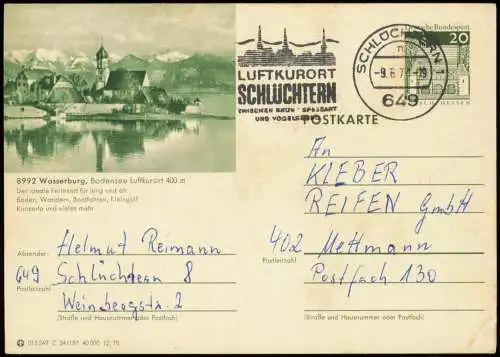 LUFTKURORT
SCHLÜCHTERN
ZWISCHEN RHÖN · SPESSART
UND VOGELSBERG
SCHLÜCHTERN 1
-9.6.7
649
Deutsche Bundespost
20
POSTKARTE
8992 Wasserburg, Bodensee Luftkurort 400 m
Der ideale Ferienort für jung und alt
Baden, Wandern, Bootfahren, Kleingolf
Konzerte und vieles mehr
Absender: Helmut Reimann
649 Schlüchtern 8
Postleitzahl
Weinbergstr. 2
(Straße und Hausnummer oder Postfach)
An
KLEBER
REIFEN GmbH
402 Mettmann
Postleitzahl
Postfach 130
(Straße und Hausnummer oder Postfach)
40 000 12. 70